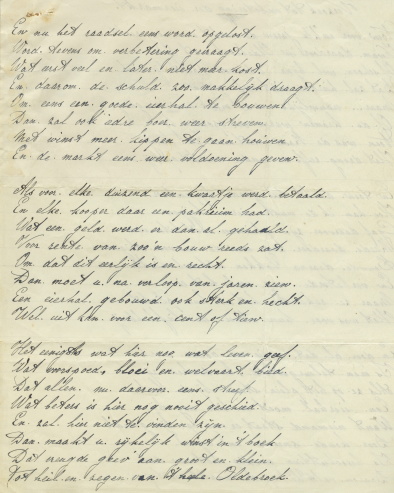 En nu het raadsel eens word opgelost.
Word tevens om verbetering gevraagt.
Wat erst veel en later niet meer kost.
En daarom de schuld zoo makkelijk draagt.
Om eens een goede eierhal te bouwen
Dan zal ook iedre boer weer streven.
Met winst meer kippen te gaan houwen
En de markt eens weer voldoening geven.
Als voor elke duizend een kwartje werd betaald.
En elke kooper daar een pakruim had.
Wat een geld word er dan al gehaald.
Voor rente van zoo'n bouw reeds zat.
Om dat dit eerlijk is en recht.
Dan moet u na verloop van jaren zien.
Een eierhal gebouwd ook sterk en hecht.
Wel uit kan voor een cent of tien.
Het eenigste wat hier nog wat leven geef.
Wat voorspoed, bloei en welvaart bied.
Dat allen nu daarvoor eens streef.
Wat beters is hier nog nooit geschied.
En zal hier niet te vinden zijn.
Dan maakt u rijkelijk winst in 't boek
Dat vreugde geev' aan groot en klein.
Tot heil en zegen van 't hele Oldebroek.